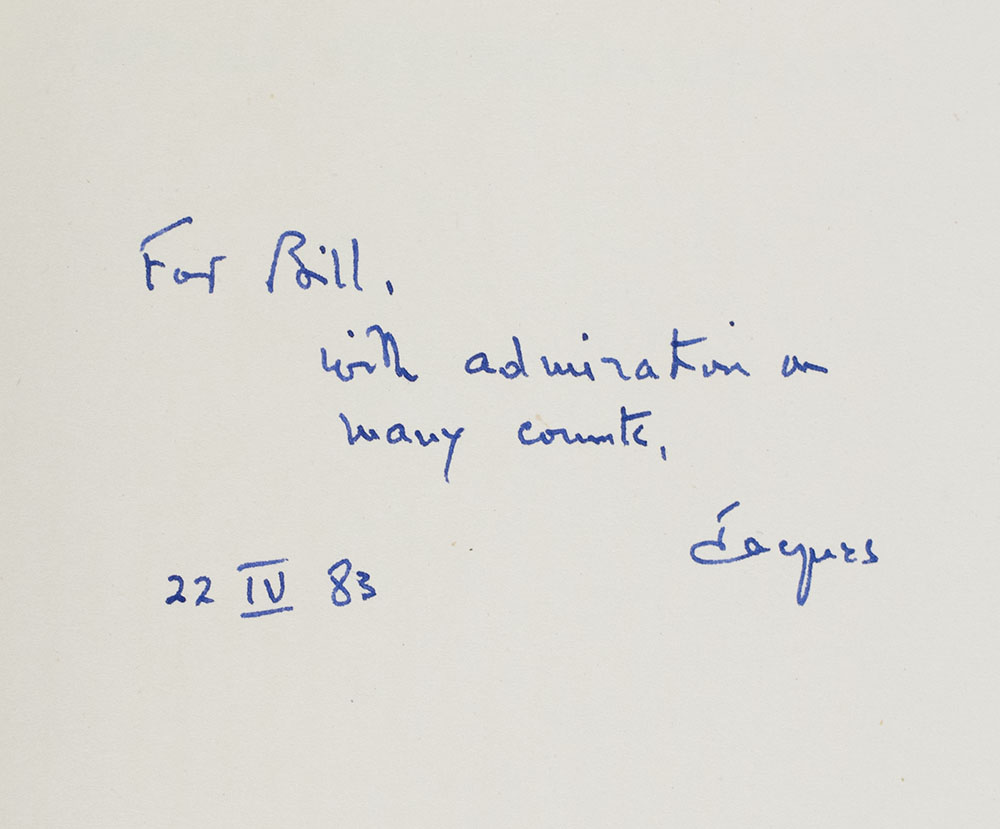 For Bill,
with admiration on
many counts,
Jacques
22 IV 83